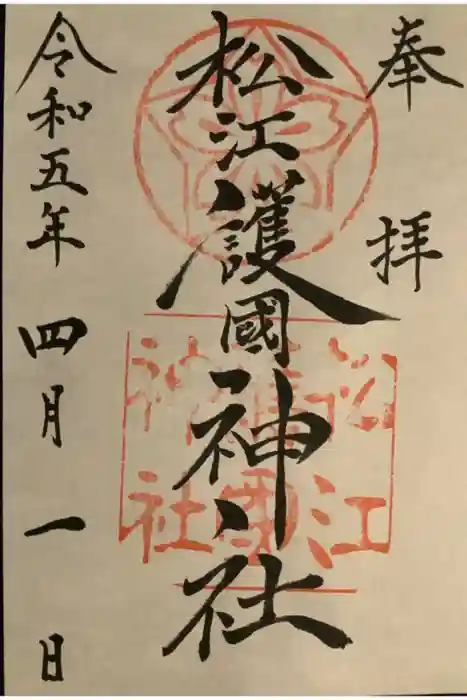 奉拝
松江護國神社
松江護国神社
令和五年四月一日